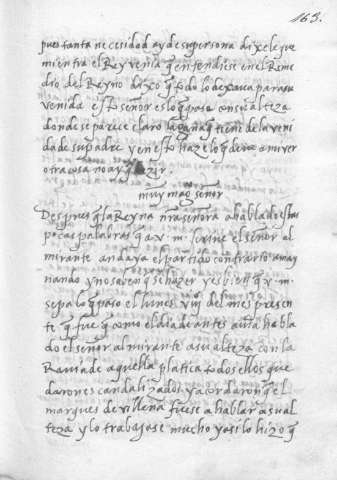 163.
pues tanta necesidad ay de su persona dixele que
mientra el Rey venia q̃ entendiese en el Reme
dio del Reyno dixo q̃ todo lo dexava para su
venida esto señor es lo q̃ paso con su alteza
donde se parece claro la gana q̃ tiene de la veni
da de su padre y en esto haze lo q̃ deve
otra cosa no ay q̃ dezir.
muy mag.co señor
Despues q̃ la Reyna nr̃a señora a hablado estas
pocas palabras q̃ a v. m. screui el señor al
mirante anda ya el partido contrario amay
nando y no saben q̃ se hazer y es bien q̃ v. m.
sepa lo q̃ paso el lunes viij del mes presen
te q̃ fue q̃ como el dia de antes avia habla
do el señor almirante a su alteza con la
Raviada aquella platica todos ellos que
daron escandalizados y acordaron q̃ el
marques de villena fuese a hablar a su al
teza y lo trabajase mucho y asi lo hizo q̃